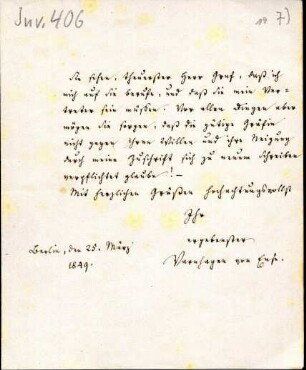 Inv. 406
7)
Sie sehen, theuerster Herr Graf, daß ich
mich auf Sie berufe, und daß Sie mein Ver-
treter sein müssen. Vor allen Dingen aber
mögen Sie sorgen, daß die gütige Gräfin
nicht gegen Ihren Willen und ihre Neigung
durch meine Zuschrift sich zu neuem Schreiben
verpflichtet glaube! —
Mit herzlichen Grüßen hochachtungsvollst
Ihr
ergebenster
Berlin, den 25. März
1849.
Varnhagen von Ense.